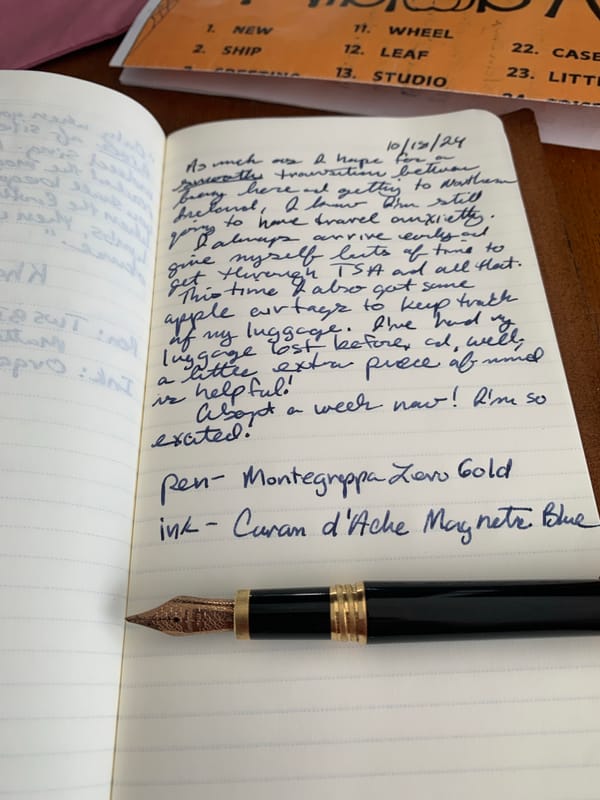 1. NEW
2. SHIP
11. WHEEL
12. LEAF
13. STUDIO
22. CASE
23. LITT
10/18/24
As much as I hope for a
smooth transition between
being here and getting to Northern
Ireland, I know I'm still
going to have travel anxiety.
I always arrive early and
give myself lots of time to
get through TSA and all that.
This time I also got some
apple airtags to keep track
of my luggage. I've had my
luggage lost before and, well,
a little extra piece of mind
is helpful!
About a week now! I'm so
excited!
pen- Montegrappa Zero Gold
ink - Caran d'Ache Magnetic Blue